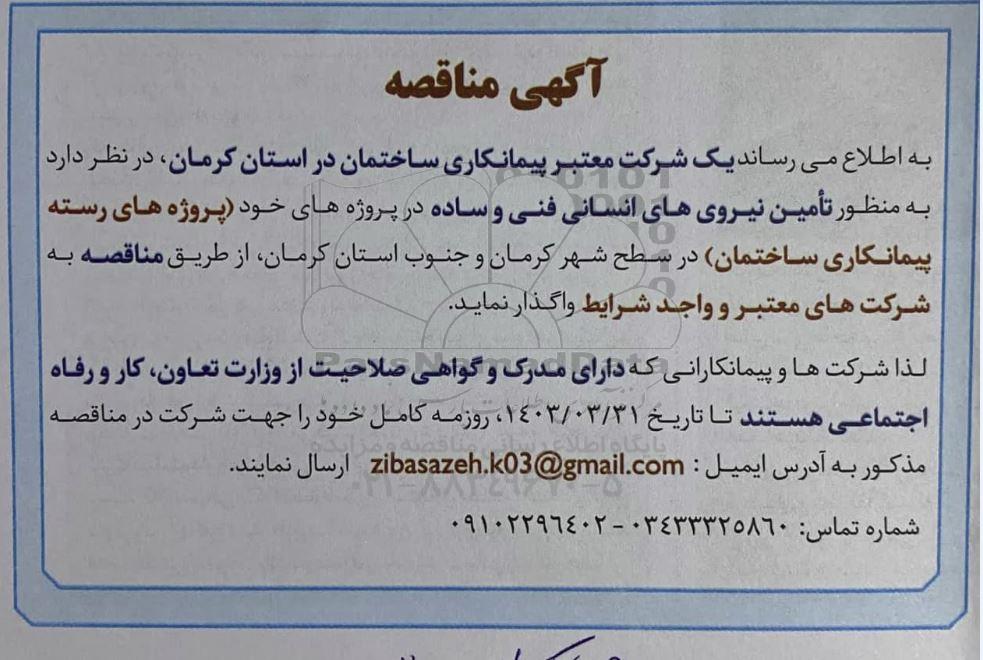 آگهی مناقصه
به اطلاع می رساند یک شرکت معتبر پیمانکاری ساختمان در استان کرمان، در نظر دارد
به منظور تأمین نیروی های انسانی فنی و ساده در پروژه های خود (پروژه های رسته
پیمانکاری ساختمان) در سطح شهر کرمان و جنوب استان کرمان، از طریق مناقصه به
شرکت های معتبر و واجد شرایط واگذار نماید.
لذا شرکت ها و پیمانکارانی که دارای مدرک و گواهی صلاحیت از وزارت تعاون، کار و رفاه
اجتماعی هستند تا تاریخ ۱٤۰۳/۰۳/۳۱، روزمه کامل خود را جهت شرکت در مناقصه
مذکور به آدرس ایمیل : zibasazeh.k03@gmail.com ارسال نمایند.
شماره تماس: ۰۳٤۳۳۳۲۵۸٦۰ - ۰۹۱۰۲۲۹٦٤۰۲
ParsNamadData
پایگاه اطلاع رسانی مناقصه و مزایده
۰۲۱-۸۸۳٤۹٦۷۰-۵